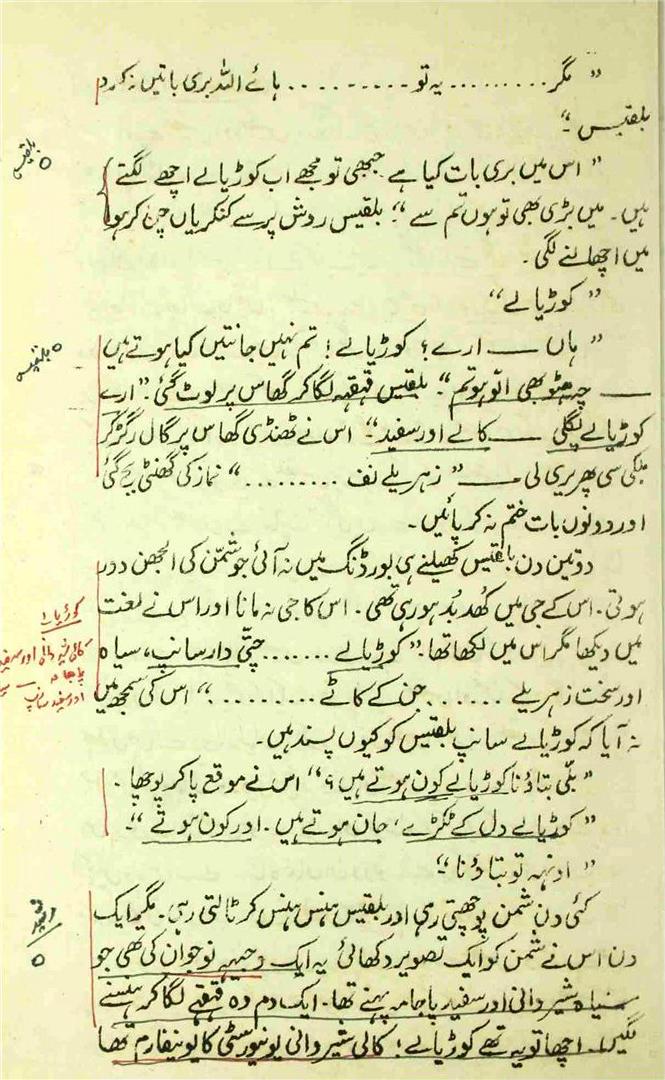 " مگر......... یہ تو ......... ہائے اللہ بری باتیں نہ کرو
بلقیس "۔
" اس میں بری بات کیا ہے جبھی تو مجھے اب کوڑیالے اچھے لگتے
ہیں۔ میں بڑی بھی تو ہوں تم سے "؛ بلقیس روش پر سے کنکریاں چن کر ہوا
میں اچھالنے لگی۔
" کوڑیالے "
" ہاں ــــ ارے؛ کوڑیالے! تم نہیں جانتیں کیا ہوتے ہیں
ــــ چہ ہٹو بھی الّو ہو تم "۔ بلقیس قہقہہ لگا کر گھاس پر لوٹ گئی۔ " ارے
کوڑیالے پگلی ــــ کالے اور سفید " اس نے ٹھنڈی گھاس پر گال رگڑ کر
ہلکی سی پھریری لی ــــ " زہریلے نف ......... " نماز کی گھنٹی بج گئی
اور دونوں بات ختم نہ کر پائیں۔
دو تین دن بلقیس کھیلنے ہی بورڈنگ میں نہ آئی جو شمّن کی الجھن دور
ہوتی۔ اس کے جی میں کُھد بُد ہو رہی تھی۔ اس کا جی نہ مانا اور اس نے لغت
میں دیکھا مگر اس میں لکھا تھا۔ " کوڑیالے ....... چتّی دار سانپ، سیاہ
اور سخت زہریلے ...... جن کے کاٹے ......... " اس کی سمجھ میں
نہ آیا کہ کوڑیالے سانپ بلقیس کو کیوں پسند ہیں۔
" بلّی بتاؤ نا کوڑیالے کون ہوتے ہیں؟ " اس نے موقع پا کر پوچھا۔
" کوڑیالے دل کے ٹکڑے، جان ہوتے ہیں۔ اور کون ہوتے "۔
" اونہہ تو بتاؤ نا "۔
کئی دن شمن پوچھتی رہی اور بلقیس ہنس ہنس کر ٹالتی رہی۔ مگر ایک
دن اس نے شمن کو ایک تصویر دکھائی یہ ایک وجیہہ نوجوان کی تھی جو
سیاہ شیروانی اور سفید پاجامہ پہنے تھا۔ ایک دم وہ قہقہے لگا کر ہنسنے
لگیں۔ اچھا تو یہ تھے کوڑیالے! کالی شیروانی یونیورسٹی کا یونیفارم تھا
بلقیس
بلقیس
کوڑیالے
کالی شیروانی اور سفید
پاجامہ
اور سفید سانپ